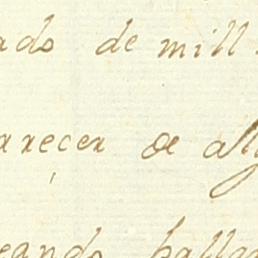 ado de mill
arecer de al
eando hallar